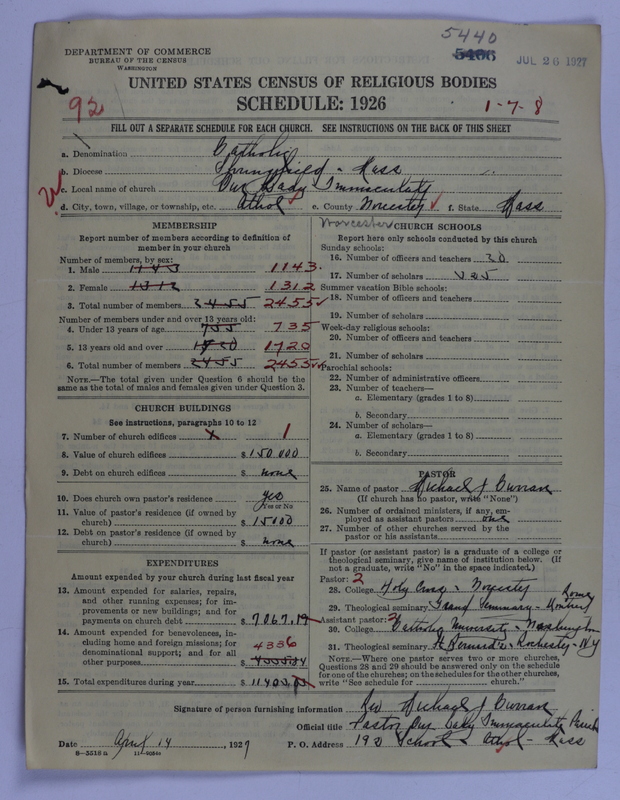 5440
DEPARTMENT OF COMMERCE
BUREAU OF THE CENSUS
WASHINGTON
JUL 26 1927
UNITED STATES CENSUS OF RELIGIOUS BODIES
SCHEDULE: 1926
92
1-7-8
FILL OUT A SEPARATE SCHEDULE FOR EACH CHURCH. SEE INSTRUCTIONS ON THE BACK OF THIS SHEET
a. Denomination Catholic
b. Diocese Springfield - Mass
c. Local name of church Our Lady Immaculate
d. City, town, village, or township, etc. Athol e. County Worcester f. State Mass
Worcester
MEMBERSHIP
Report number of members according to definition of member in your church
Number of members, by sex:
1. Male 1143 1143
2. Female 1312 1312
3. Total number of members 2455 2455
Number of members under and over 13 years old:
4. Under 13 years of age 735
5. 13 years old and over 1720 1720
6. Total number of members 2455 2455
NOTE.—The total given under Question 6 should be the same as the total of males and females given under Question 3.
CHURCH BUILDINGS
See instructions, paragraphs 10 to 12
7. Number of church edifices 1
8. Value of church edifices $ 150 000
9. Debt on church edifices $ none
10. Does church own pastor's residence yes
Yes or No
11. Value of pastor's residence (if owned by church) $ 15000
12. Debt on pastor's residence (if owned by church) $ none
EXPENDITURES
Amount expended by your church during last fiscal year
13. Amount expended for salaries, repairs, and other running expenses; for improvements or new buildings; and for payments on church debt $ 7067.19
14. Amount expended for benevolences, including home and foreign missions; for denominational support; and for all other purposes 4336
15. Total expenditures during year $
CHURCH SCHOOLS
Report here only schools conducted by this church
Sunday schools:
16. Number of officers and teachers 30
17. Number of scholars
Summer vacation Bible schools:
18. Number of officers and teachers
19. Number of scholars
Week-day religious schools:
20. Number of officers and teachers
21. Number of scholars
Parochial schools:
22. Number of administrative officers
23. Number of teachers—
a. Elementary (grades 1 to 8)
b. Secondary
24. Number of scholars—
a. Elementary (grades 1 to 8)
b. Secondary
PASTOR
25. Name of pastor Michael J Curran
(If church has no pastor, write "None")
26. Number of ordained ministers, if any, employed as assistant pastors one
27. Number of other churches served by the pastor or his assistants
If pastor (or assistant pastor) is a graduate of a college or theological seminary, give name of institution below. (If not a graduate, write "No" in the space indicated.)
Pastor: 2
28. College Holy Cross - Worcester
29. Theological seminary Grand Seminary - Montreal
Assistant pastor:
30. College Catholic University - Washington
31. Theological seminary St Bernards - Rochester - N Y
NOTE.—Where one pastor serves two or more churches, Questions 28 and 29 should be answered only on the schedule for one of the churches; on the schedules for the other churches, write "See schedule for church."
Signature of person furnishing information Rev Michael J Curran
Official title Pastor Our Lady Immaculate Parish
Date April 14, 1927 P. O. Address 192 School - Athol - Mass
8-5518a